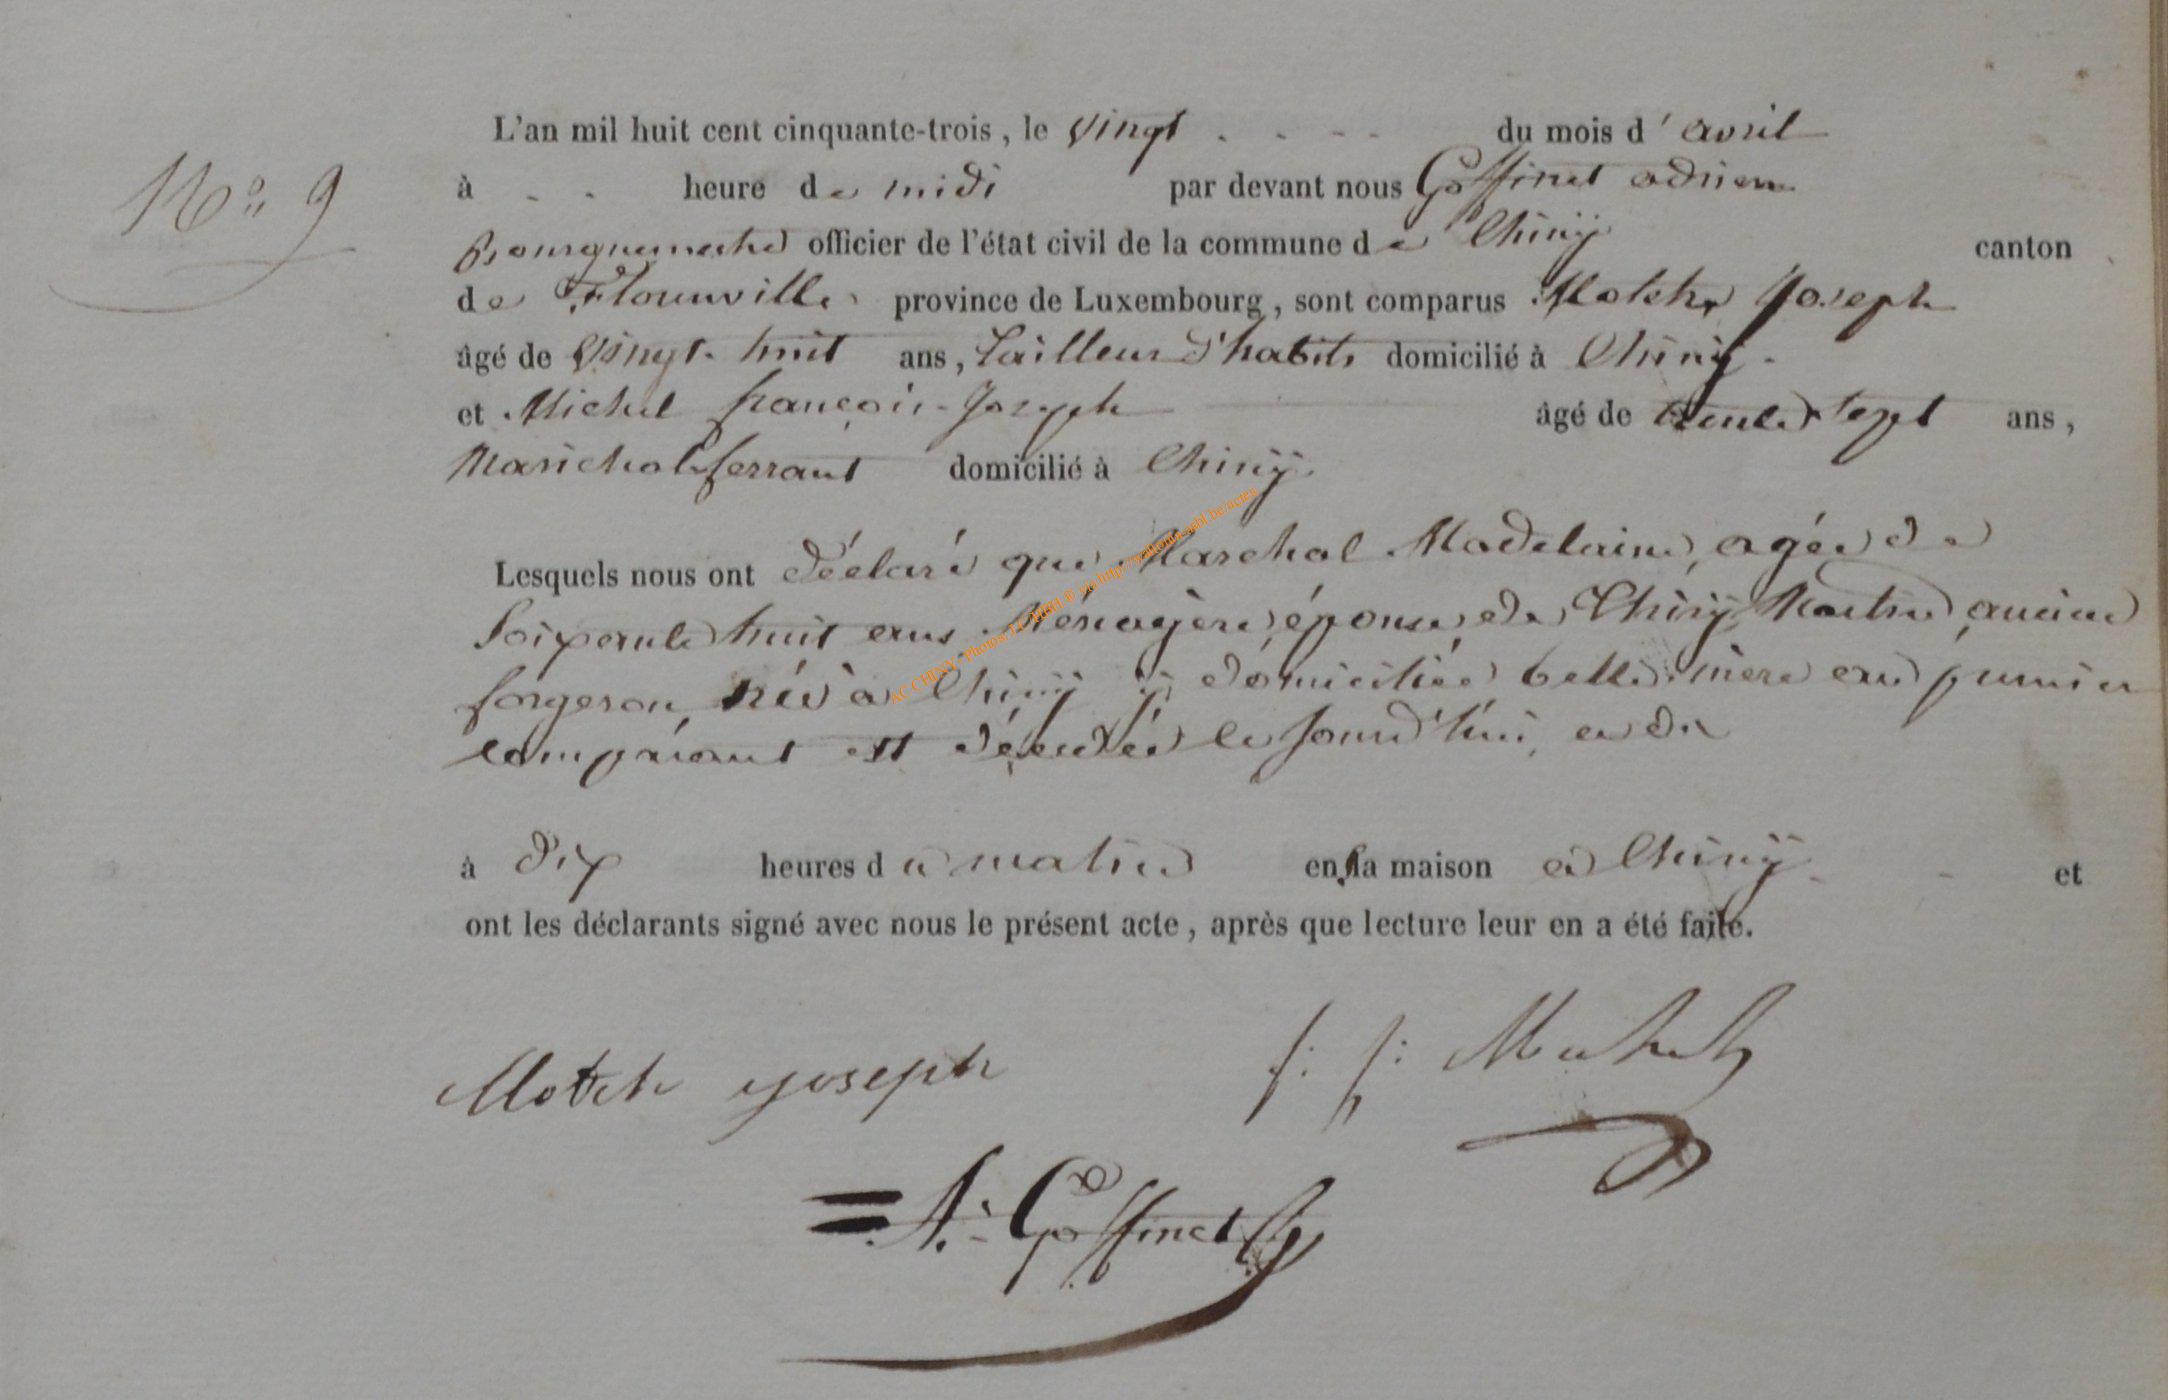 L'an mil huit cent cinquante-trois, le vingt - - - - du mois d'avril
N° 9
à - - heure de midi par devant nous Goffinet adrien
Bourguemestre officier de l'état civil de la commune de Chinÿ canton
de Florenville province de Luxembourg, sont comparus Motch Joseph
âgé de vingt-huit ans, tailleur d'habits domicilié à Chinÿ -
et Michel françois-Joseph âgé de trente sept ans,
Marichal ferrant domicilié à Chinÿ
Lesquels nous ont déclaré que Marchal Madelaine, agée de
Soixante huit ans, Ménagère, épouse de Chinÿ Martin, ancien
forgeron, née à Chinÿ ÿ domiciliée belle-mère au premier
comparant est décédée le jourd'hui,
à dix heures du matin en sa maison à Chinÿ - - et
ont les déclarants signé avec nous le présent acte, après que lecture leur en a été faite.
Motch joseph f: j: Michel
A: Goffinet
AC CHINY - Photos